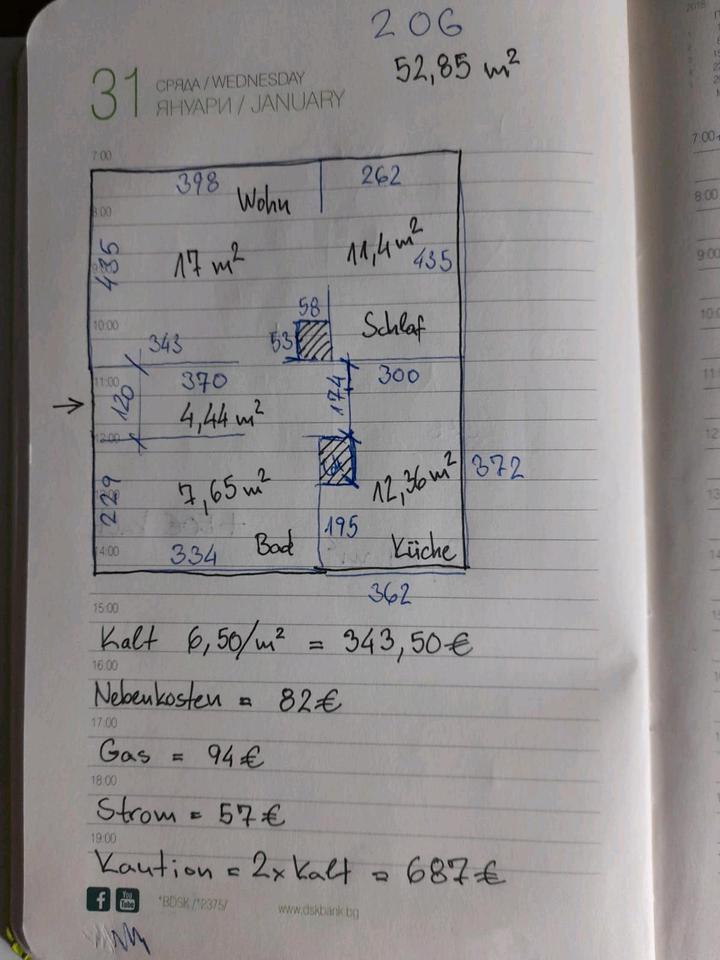 2 OG
52,85 m²
31 СРЯДА / WEDNESDAY
ЯНУАРИ / JANUARY
7:00
398 Wohn 262
8:00
17 m² 11,4 m²
435 435
58
10:00 53 Schlaf
343
11:00 370 174 300
120 4,44 m²
12:00
7,65 m² 12,36 m² 372
229
195
14:00 334 Bad Küche
362
15:00
Kalt 6,50/m² = 343,50 €
16:00
Nebenkosten = 82 €
17:00
Gas = 94 €
18:00
Strom = 57 €
19:00
Kaution = 2 x Kalt = 687 €
f You Tube *BDSK /*2375/ www.dskbank.bg
7:00
8:00
9:00